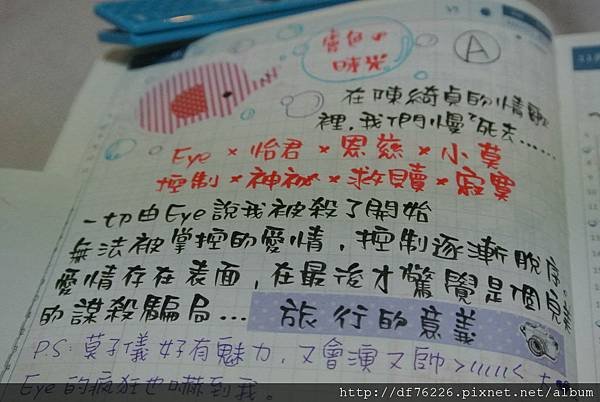 藍色的
時光
A
在陳綺貞的情歌
裡,我們慢慢死去......
Eye × 怡君 × 恩慈 × 小莫
控制 × 神祕 × 救贖 × 寂寞
一切由Eye說我被殺了開始
無法被掌控的愛情,控制逐漸脫序。
愛情存在表面,在最後才驚覺是個完美
的謀殺騙局...
旅行的意義
PS:莫子儀好有魅力,又會演又帥
Eye的瘋狂也嚇到我。
http://df76226.pixnet.net/album